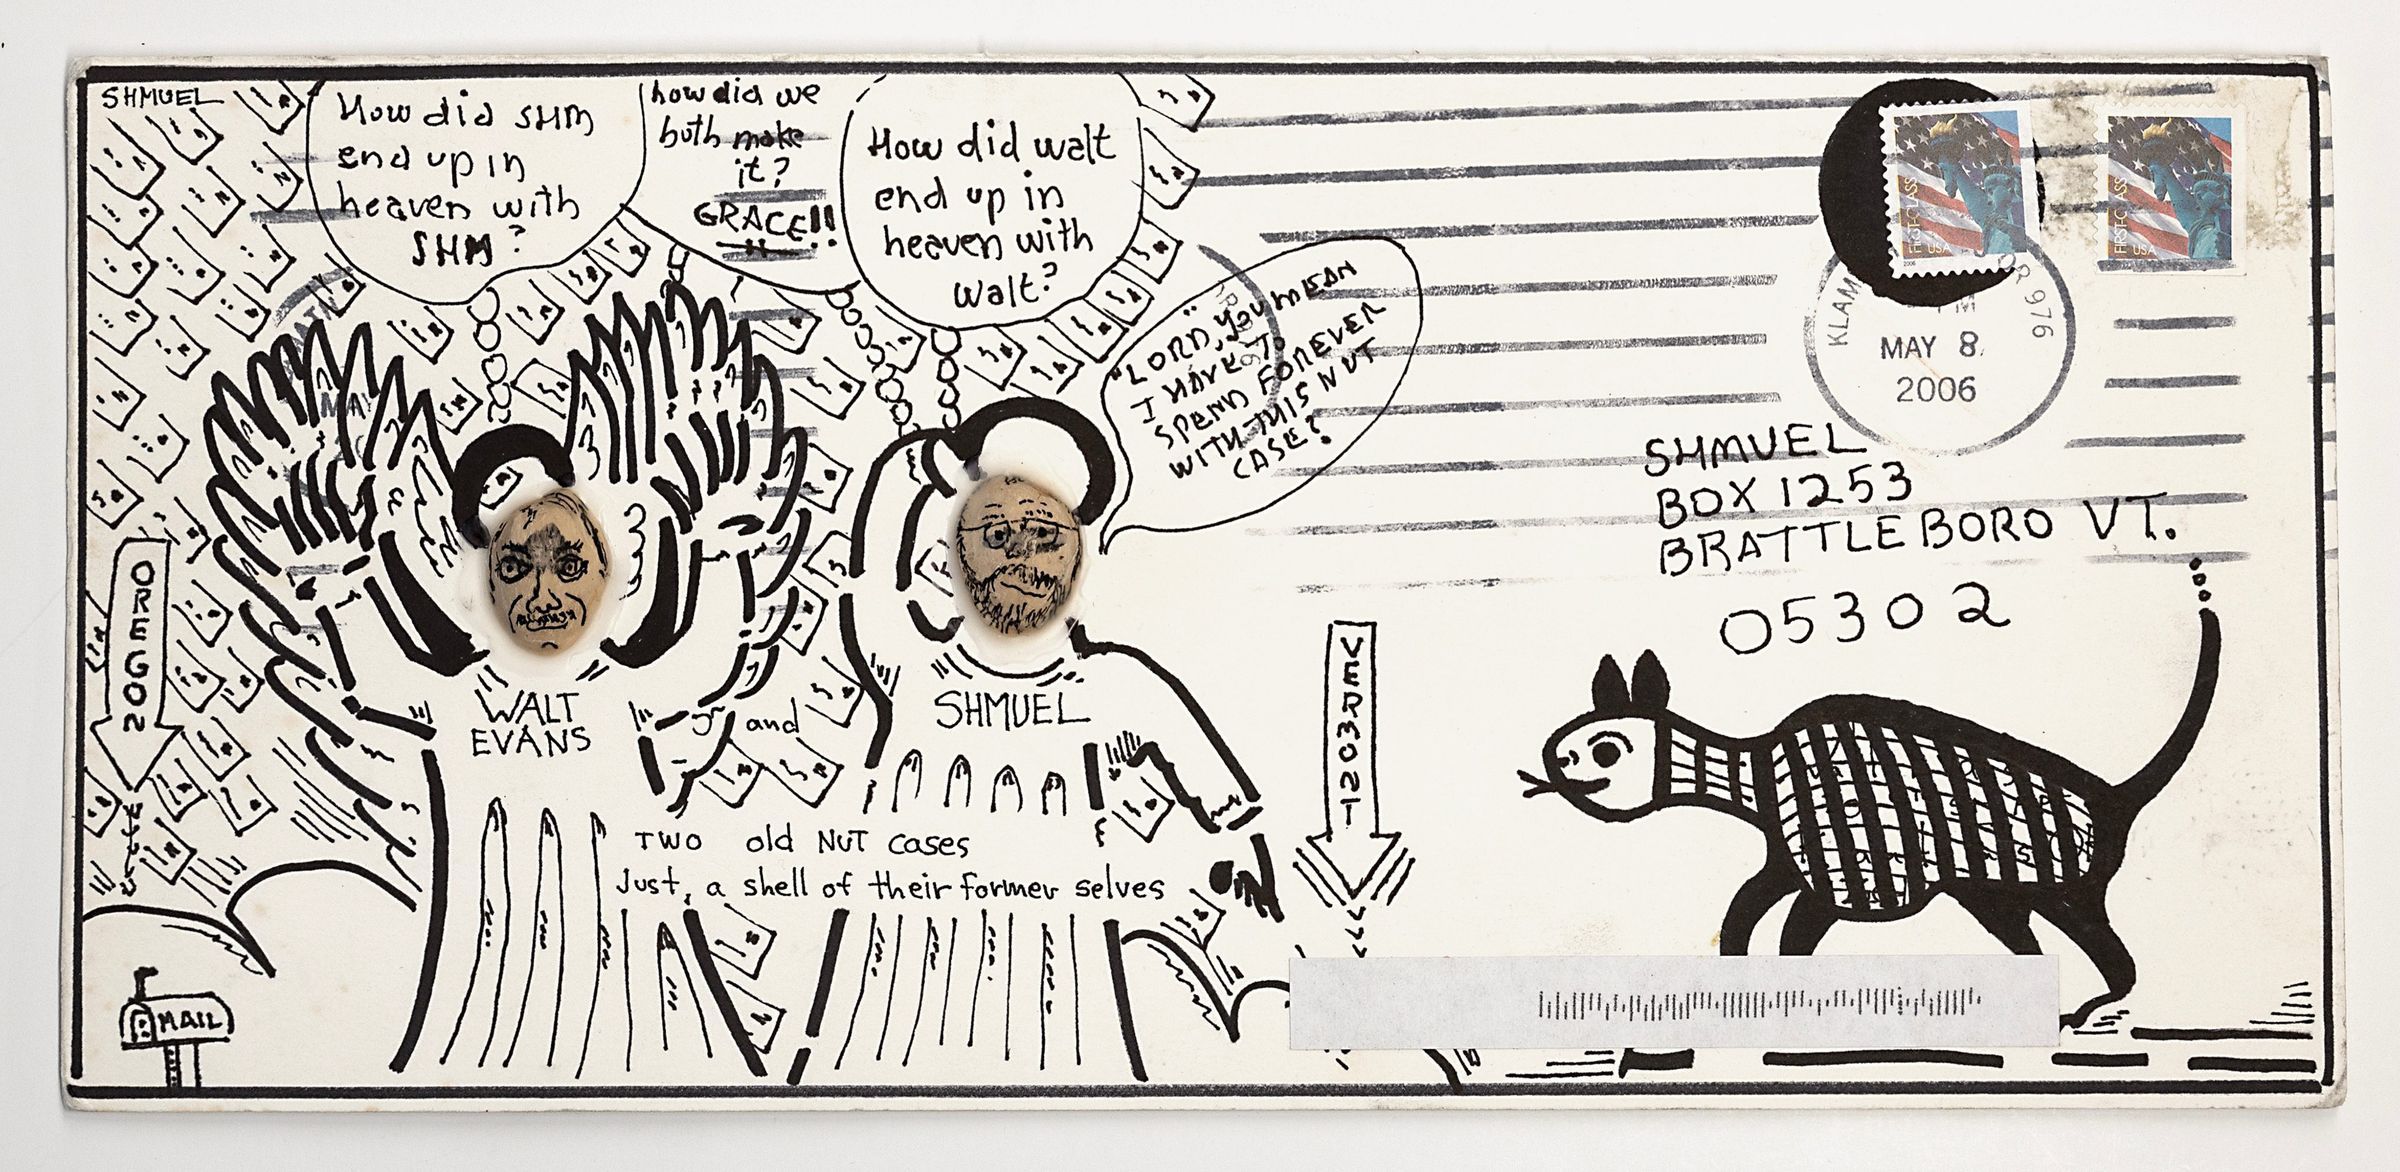 SHMUEL
How did SHM
end up in
heaven with
SHM?
how did we
both make
it?
GRACE!!
How did walt
end up in
heaven with
walt?
"LORD, you mean
I HAVE TO
SPEND FOREVER
WITH THIS NUT
CASE?
FIRST-CLASS
USA
2006
FIRST-CLASS
USA
KLAM OR 976
PM
MAY 8
2006
SHMUEL
BOX 1253
BRATTLEBORO VT.
05302
OREGON
WALT
EVANS
and
SHMUEL
VERMONT
TWO old NUT cases
Just, a shell of their former selves
MAIL